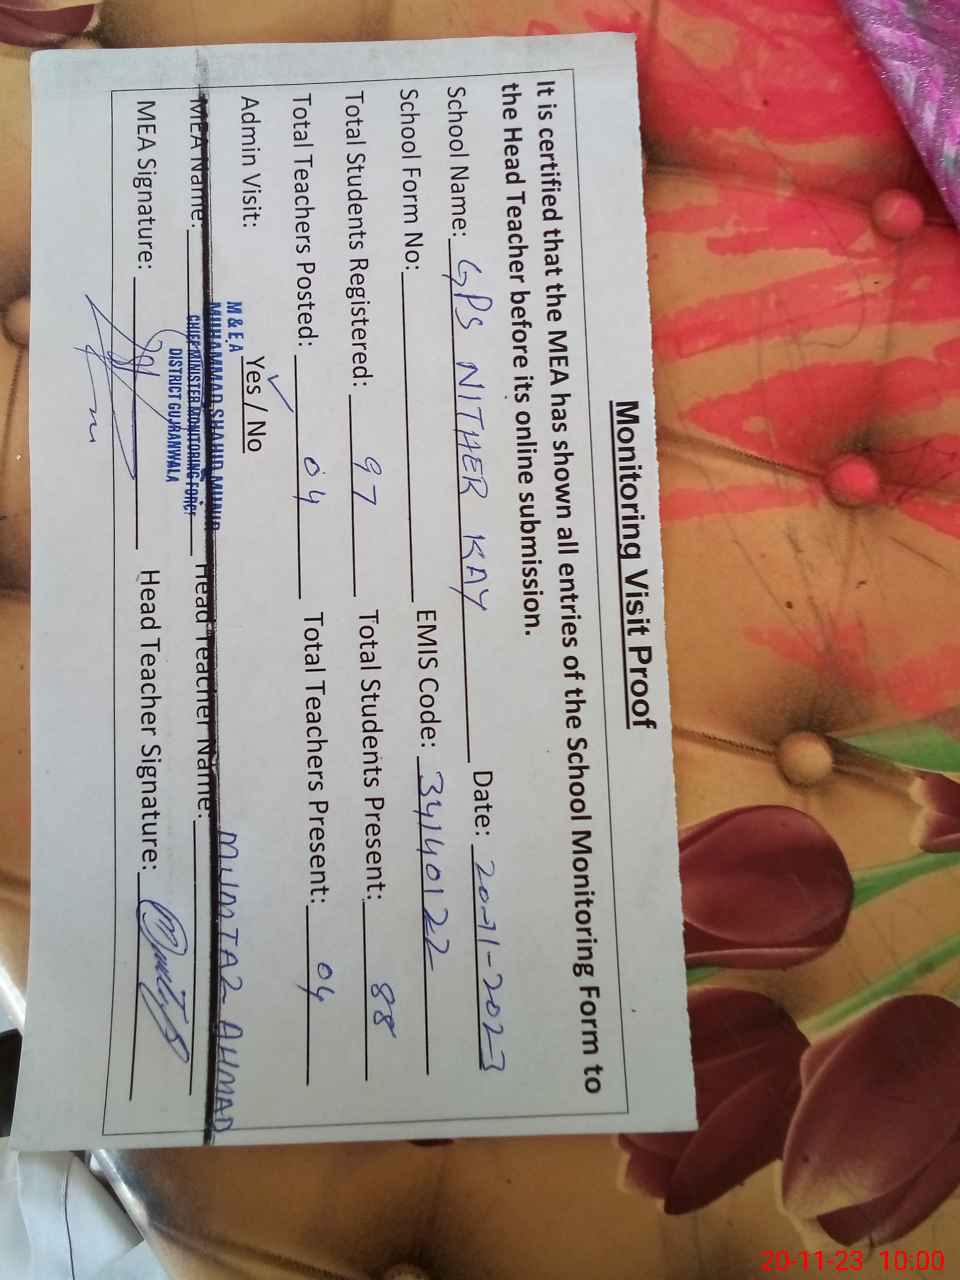 Monitoring Visit Proof
It is certified that the MEA has shown all entries of the School Monitoring Form to
the Head Teacher before its online submission.
School Name: GPS NITHER KAY Date: 20-11-2023
School Form No: EMIS Code: 34140122
Total Students Registered: 97 Total Students Present: 88
Total Teachers Posted: 04 Total Teachers Present: 04
Admin Visit: Yes / No
M & E A
MUHAMMAD SHAHID MUNIR
MEA Name: Head Teacher Name: MUMTAZ AHMAD
CHIEF MINISTER MONITORING FORCE
DISTRICT GUJRANWALA
MEA Signature: Head Teacher Signature:
20-11-23 10:00